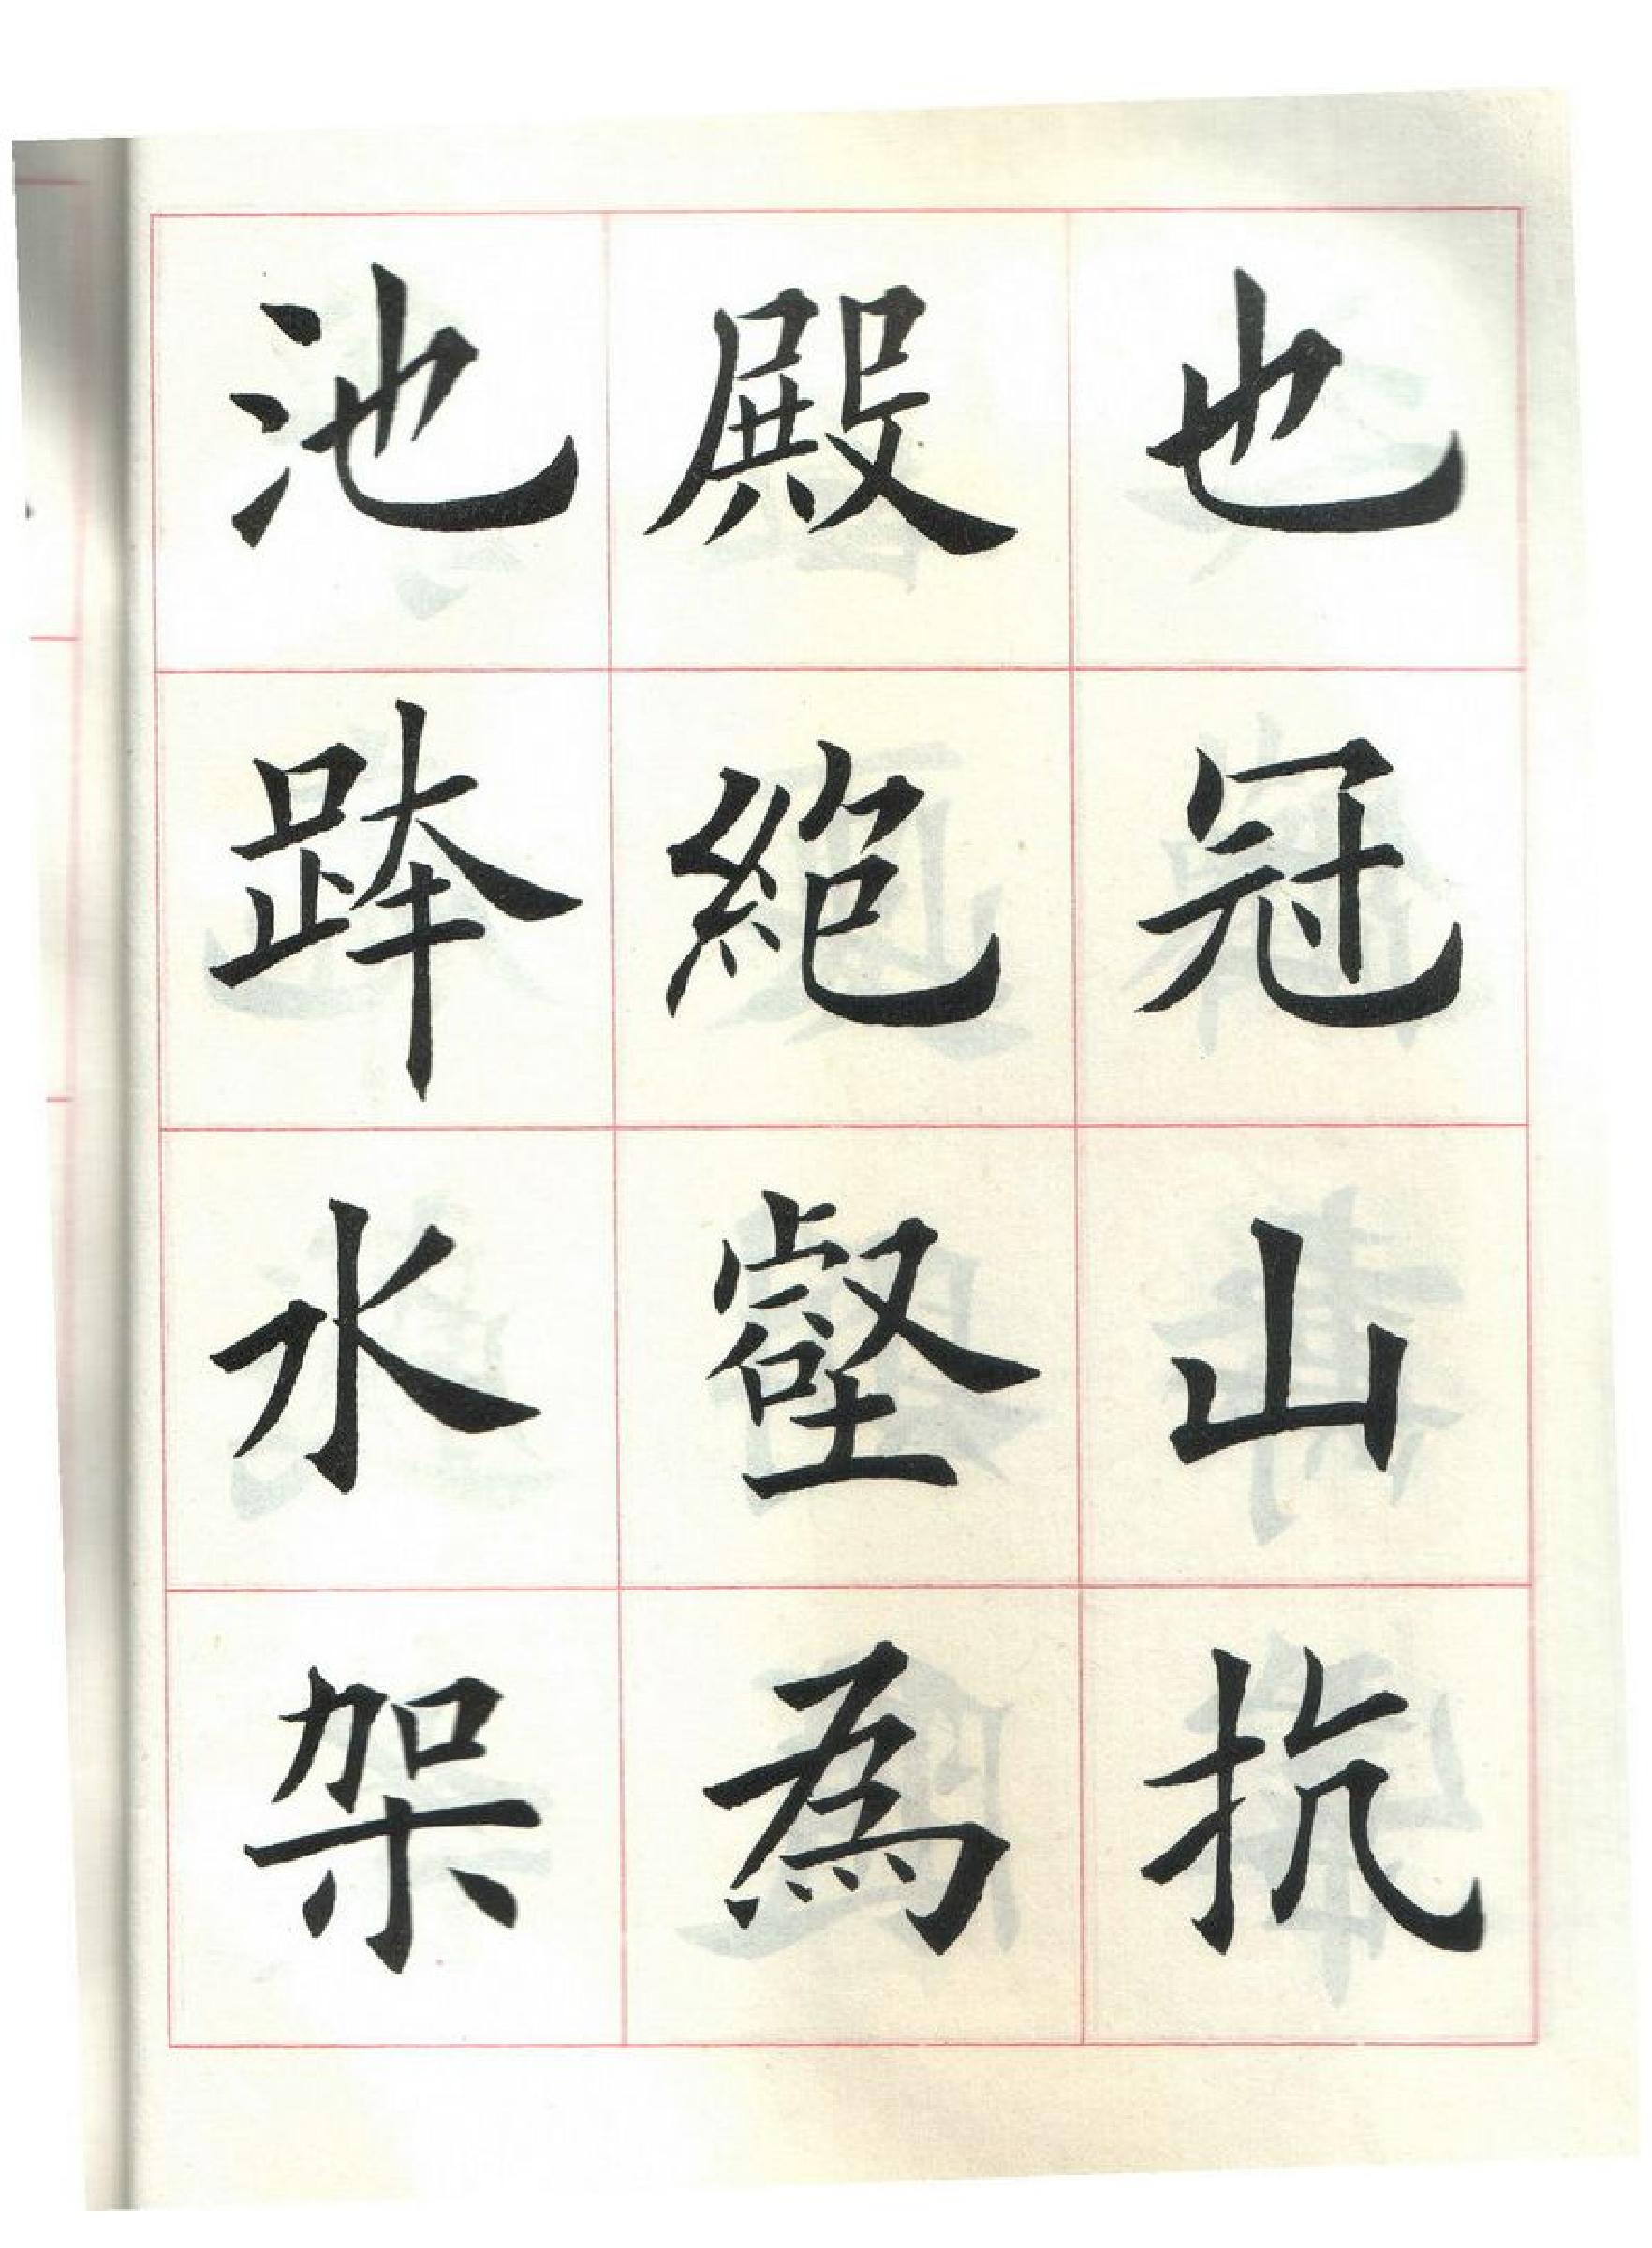 也冠山抗
殿絶壑為
池跨水架